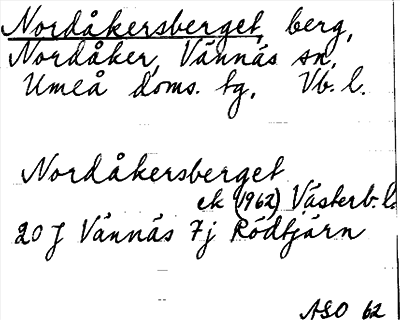 Nordåkersberget, berg,
Nordåker, Vännäs sn,
Umeå doms. tg, Vb. l.
Nordåkersberget
ek (1962) Västerb. l.
20 J Vännäs 7j Rödtjärn
ASO 62